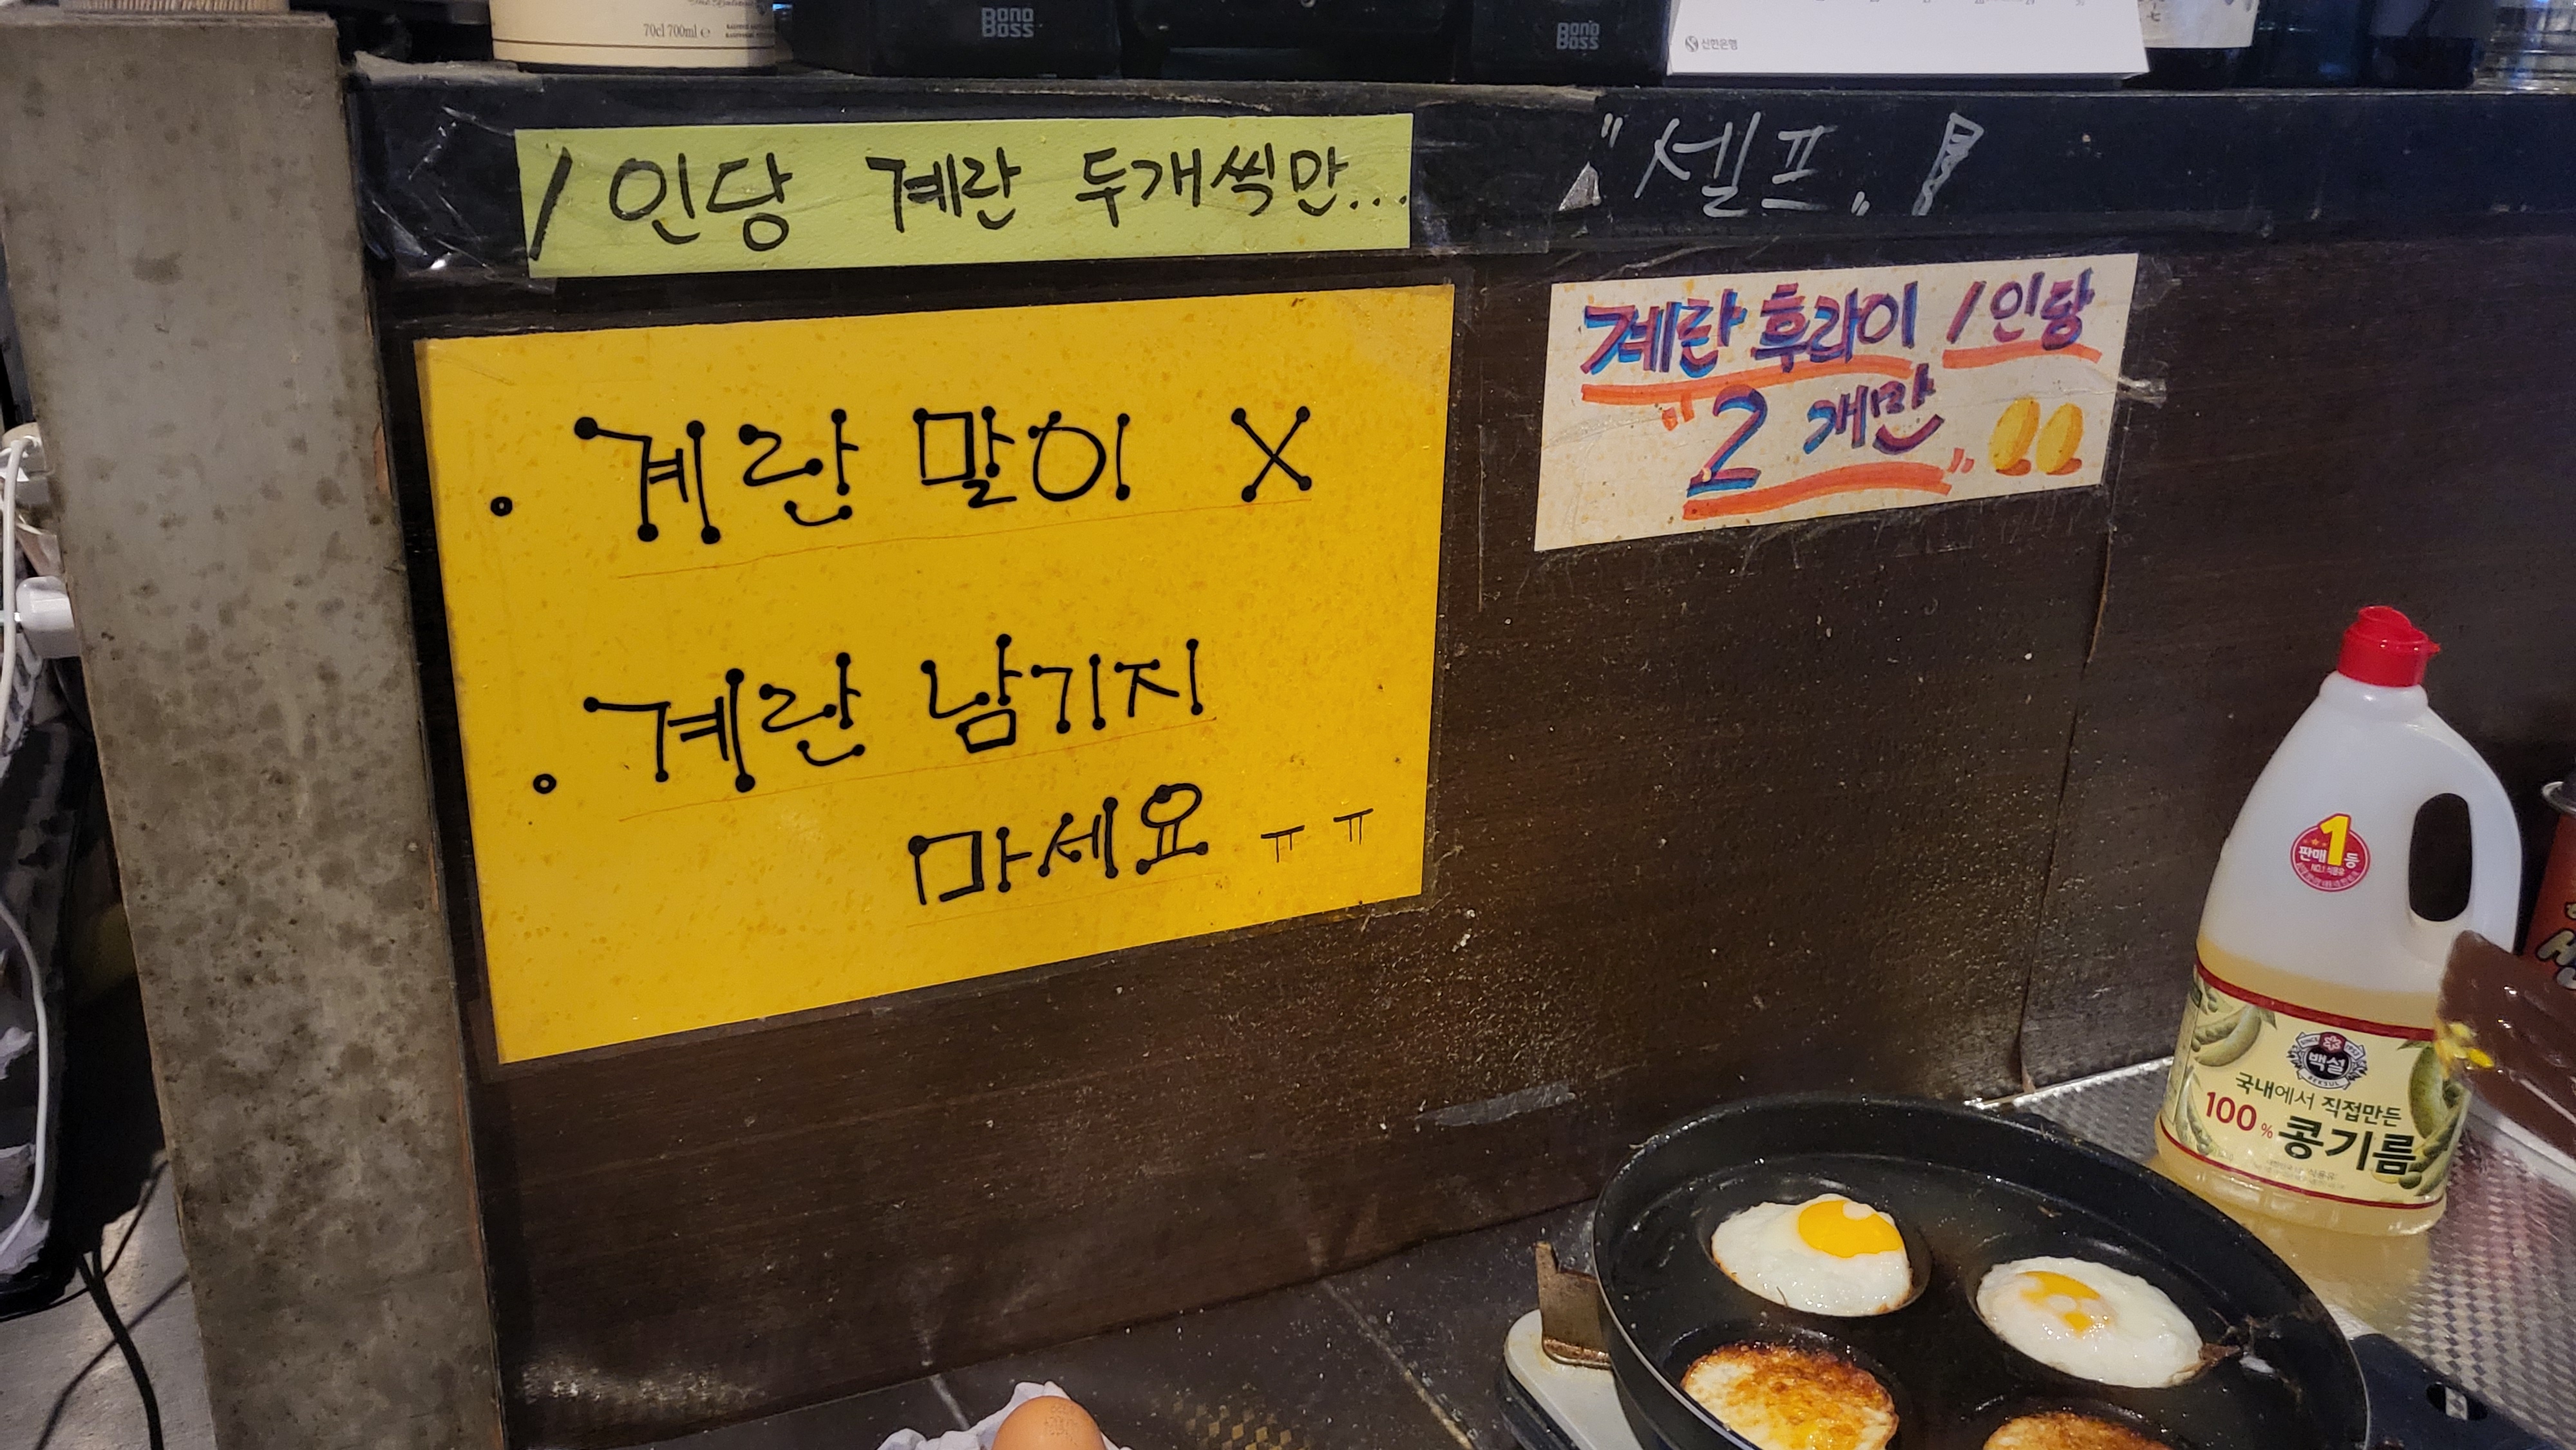 70cl 700ml e
BONO
BOSS
BONO
BOSS
신한은행
1인당 계란 두개씩만...
"셀프" !
계란 후라이 1인당
"2개만"
. 계란말이 X
. 계란 남기지
마세요 ㅠㅠ
판매1등
NO.1 식용유
백설
BEKSUL
국내에서 직접만든
100% 콩기름